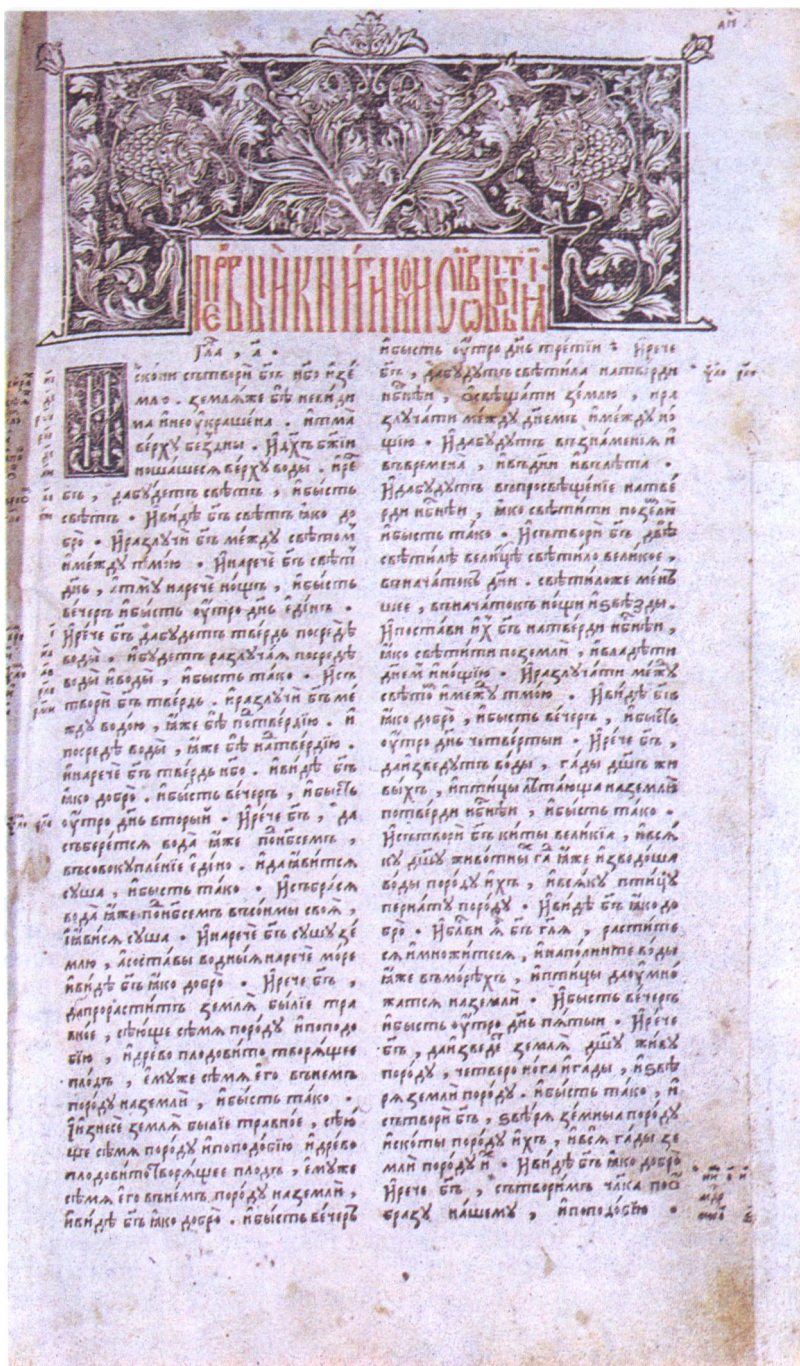 Гла҇ , а҃ .
Искони сътвори бг҃ъ нб҃о и҆зе
млю . земля́же бѣ̀ неви́ди
ма и҆неѹкраше́на . и҆тма̀
ве́рху бе́здны . и҆дх҃ъ бж҃іи
ноша́шеся ве́рху воды̀ . и҆речѐ
бг҃ъ , да бу́детъ свѣ́тъ , и҆бы́сть
свѣ́тъ . И҆ви́дѣ бг҃ъ свѣ́тъ ꙗ҆́ко до
бро̀ . И҆разлучѝ бг҃ъ между свѣ́томъ
и҆ме́жду тмо́ю . И҆наречѐ бг҃ъ свѣ́тъ
дн҃ь , а҆тму̀ наречѐ но́щь , и҆бы́сть
ве́черъ и҆бы́сть ѹ҆́тро дн҃ь є҆ди́нъ .
И҆речѐ бг҃ъ да бу́детъ тве́рдь посредѣ̀
воды̀ , и҆бу́детъ разлуча́я посредѣ̀
воды̀ и҆воды̀ , и҆бы́сть та́ко . И҆съ
творѝ бг҃ъ тве́рдь . и҆разлучѝ бг҃ъ ме
жду водо́ю , ꙗ҆́же бѣ̀ подтве́рдїю . и҆
посредѣ̀ воды̀ , ꙗ҆́же бѣ̀ надтве́рдїю .
и҆наречѐ бг҃ъ тве́рдь нб҃о . и҆ви́дѣ бг҃ъ
ꙗ҆́ко добро̀ . и҆бы́сть ве́черъ , и҆бы́сть
ѹ҆́тро дн҃ь вторы́й . И҆речѐ бг҃ъ , да
събере́тся вода̀ ꙗ҆́же поднб҃семъ ,
въсовокупле́нїе є҆ди́но . и҆да ꙗ҆ви́тся
су́ша , и҆бы́сть та́ко . И҆събра́ся
вода̀ ꙗ҆́же поднб҃семъ въсо́нмы своя̀ ,
и҆ꙗ҆ви́ся су́ша . И҆наречѐ бг҃ъ су́шу зе́
млю , а҆соста́вы водны́я наречѐ море
и҆ви́дѣ бг҃ъ ꙗ҆́ко добро̀ . И҆речѐ бг҃ъ ,
да прорасти́тъ земля̀ бы́лїе тра
вно́е , сѣ́юще сѣ́мя по́роду и҆поподо́
бїю , и҆дре́во плодови́то творя́щее
пло́дъ , є҆му́же сѣ́мя є҆го̀ вънемъ
по́роду наземлѝ , и҆бы́сть та́ко .
И҆и҆знесѐ земля̀ бы́лїе травно́е , сѣ́ю
ще сѣ́мя по́роду и҆поподо́бїю и҆дре́во
плодови́то творя́щее пло́дъ , є҆му́же
сѣ́мя є҆го̀ вънемъ по́роду наземлѝ ,
и҆ви́дѣ бг҃ъ ꙗ҆́ко добро̀ . и҆бы́сть ве́черъ
и҆бы́сть ѹ҆́тро дн҃ь тре́тїи . И҆рече
бг҃ъ , да бу́дутъ свѣти́ла натве́рди
нб҃нѣи , ѻ҆свѣща́ти зе́млю , и҆ра
злуча́ти ме́жду дн҃емъ и҆ме́жду но́
щїю . И҆да бу́дутъ възна́менїя и҆
въвремена , и҆въдни и҆вълѣта .
И҆да бу́дутъ въпросвѣще́нїе натве́
рди нб҃нѣи , ꙗ҆́ко свѣти́ти поземлѝ
и҆бы́сть та́ко . И҆сътворѝ бг҃ъ двѣ̀
свѣти́лѣ вели́цѣ свѣти́ло вели́кое ,
въ нача́токъ дни . свѣти́ложе ме́нь
шее , въ нача́токъ но́щи и҆ѕвѣ́зды .
И҆поста́ви и҆̀х бг҃ъ натве́рди нб҃нѣи ,
ꙗ҆́ко свѣти́ти поземлѝ , и҆владѣ́ти
дн҃емъ и҆но́щїю . И҆разлуча́ти ме́жду
свѣ́томъ и҆ме́жду тмо́ю . И҆ви́дѣ бг҃ъ
ꙗ҆́ко добро̀ , и҆бы́сть ве́черъ , и҆бы́сть
ѹ҆́тро дн҃ь четве́ртыи . И҆рече бг҃ъ ,
да и҆зведу́тъ во́ды , га́ды дш҃ъ жи
вы́хъ , и҆пти́цы лѣта́юща наземлѝ
потве́рди нб҃нѣи , и҆бы́сть та́ко .
И҆сътворѝ бг҃ъ ки́ты вели́кїа , и҆вся́
ку дш҃у живо́тны га ꙗ҆́же и҆зведо́ша
во́ды поро́ду и҆́хъ , и҆вся́ку пти́цу
перна́ту поро́ду . И҆ви́дѣ бг҃ъ ꙗ҆́ко до
бро̀ . И҆блг҃ви ꙗ҆̀ бг҃ъ гл҃я , расти́те
ся и҆мно́житеся , и҆напо́лните во́ды
ꙗ҆́же въмо́рѣхъ , и҆пти́цы да ѹ҆мно́
жатся наземлѝ . И҆бы́сть ве́черъ
и҆бы́сть ѹ҆́тро дн҃ь пя́тыи . И҆рече
бг҃ъ , да и҆зведе́ земля̀ дш҃у жи́ву
поро́ду , четверо но́га и҆га́ды , и҆ѕвѣ́
ря землѝ поро́ду . и҆бы́сть та́ко , и҆
сътворѝ бг҃ъ , ѕвѣ́ря земны́а поро́ду
и҆ско́ты поро́ду и҆́хъ , и҆вся̀ га́ды зе
млѝ поро́ду и҆́х . И҆ви́дѣ бг҃ъ ꙗ҆́ко добро̀
И҆рече бг҃ъ , сътвори́мъ чл҃ка поо́
бразу на́шему , и҆поподо́бїю .